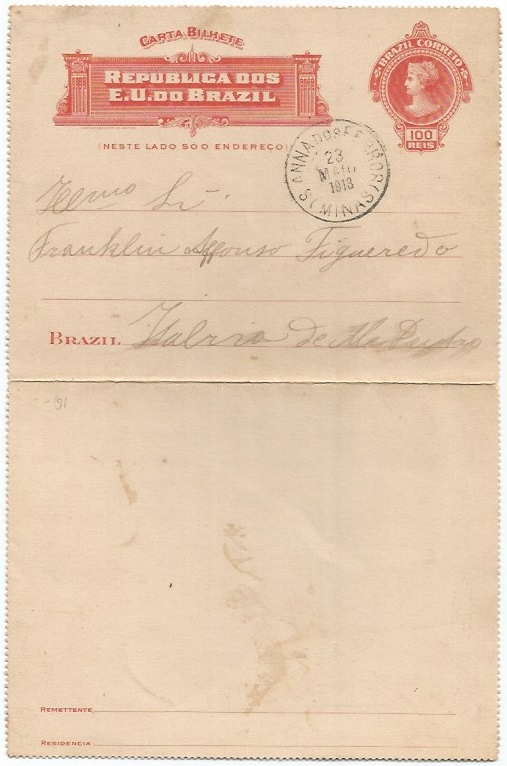 CARTA BILHETE
REPUBLICA DOS
E.U. DO BRAZIL
BRAZIL CORREIO
100
REIS
(NESTE LADO SO O ENDEREÇO)
S. ANNA DOS FERROS (MINAS)
23
MAIO
1913
Exmo Sr.
Franklin Affonso Figueredo
BRAZIL de Matto Dentro
-191
REMETTENTE
RESIDENCIA